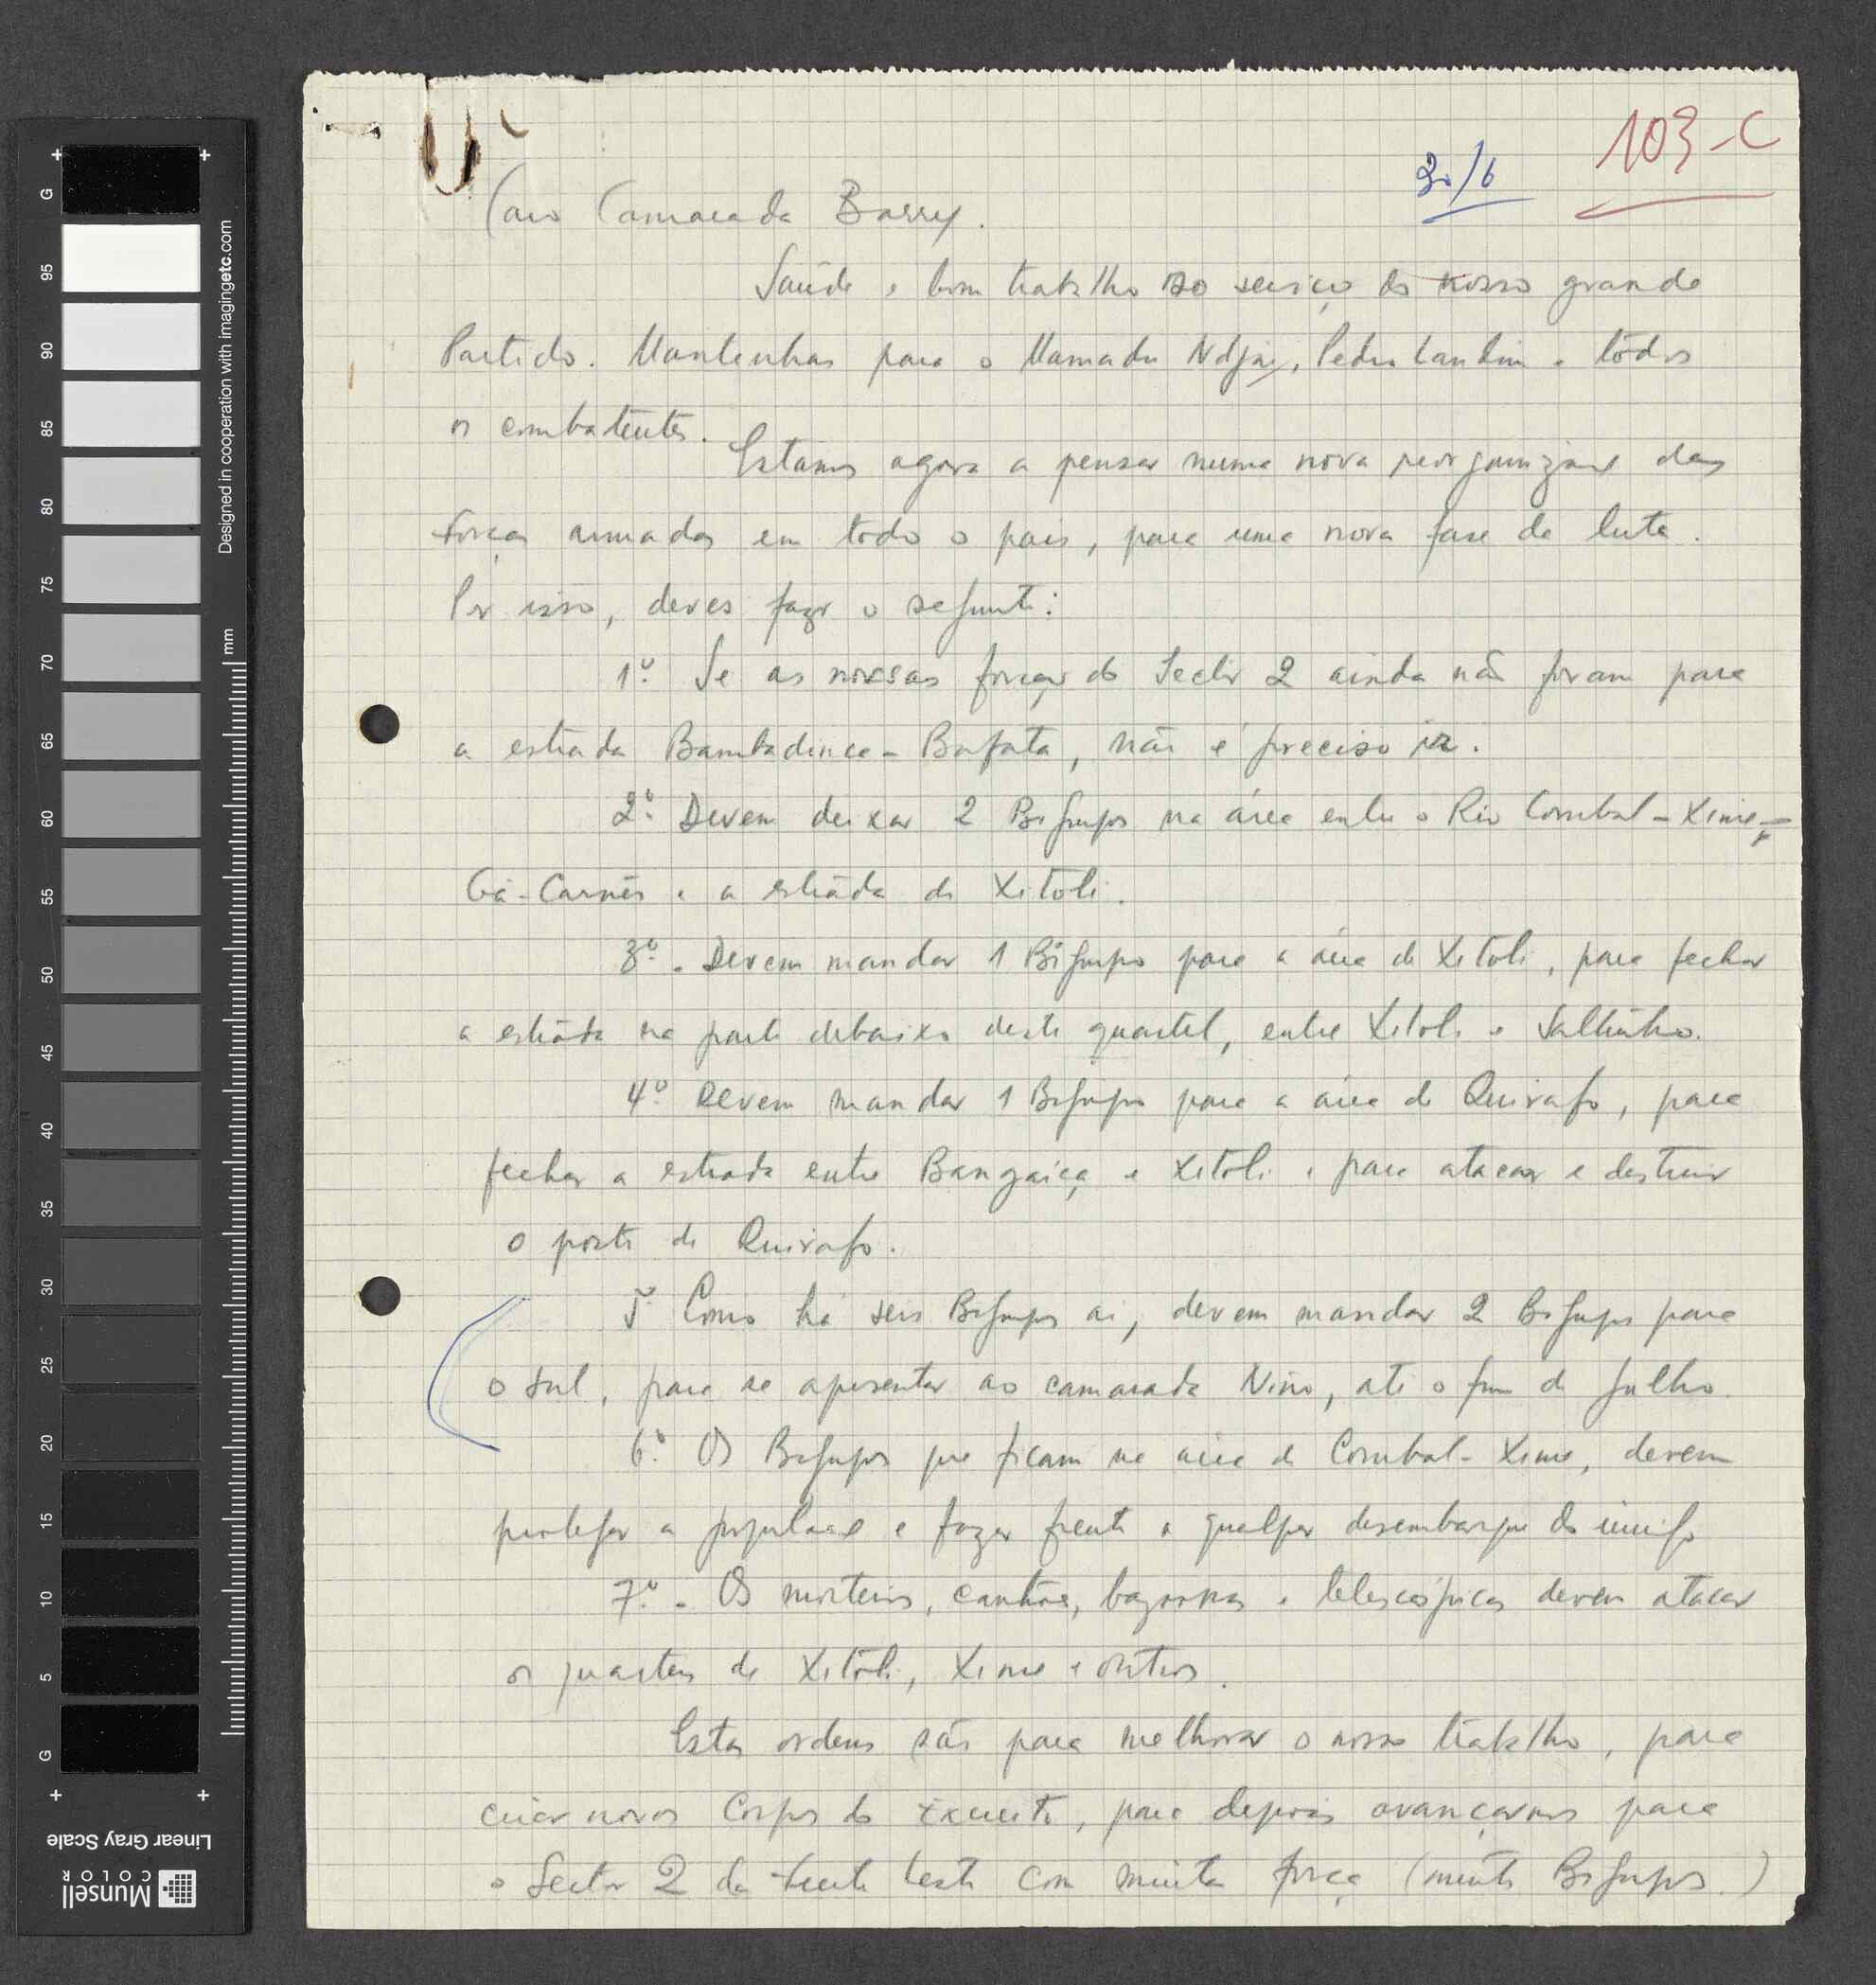 103-C
30/6
Caro Camarada Barry.
Saúde e bom trabalho ao serviço do nosso grande
Partido. Mantenhas para o Mamadu Ndjai, Pedro Landim e todos
os combatentes.
Estamos agora a pensar numa nova reorganização das
forças armadas em todo o país, para uma nova fase da luta.
Por isso, deves fazer o seguinte:
1º. Se as nossas forças do Sector 2 ainda não foram para
a estrada Bambadinca - Bafata, não é preciso ir.
2º. Devem deixar 2 Bigrupos na área entre o Rio Corubal - Xime,
Gã-Carnés e a estrada de Xitoli.
3º. Devem mandar 1 Bigrupo para a área de Xitoli, para fechar
a estrada na parte debaixo deste quartel, entre Xitoli e Saltinho.
4º. Devem mandar 1 Bigrupo para a área de Quirafo, para
fechar a estrada entre Bangaiça e Xitoli e para atacar e destruir
o posto de Quirafo.
5º. Como há seis Bigrupos aí, devem mandar 2 Bigrupos para
o Sul, para se apresentar ao camarada Nino, até o fim de Julho.
6º. Os Bigrupos que ficam na área de Corubal - Xime, devem
proteger a população e fazer frente a qualquer desembarque do inimigo
7º. Os morteiros, canhões, bazookas e telescópicas devem atacar
os quarteis de Xitoli, Xime e outros.
Estas ordens são para melhorar o nosso trabalho, para
criar novos Corpos do Exercito, para depois avançarmos para
o Sector 2 da frente Leste com muita força (muitos Bigrupos.)
G
95
90
85
80
75
70
65
60
55
50
45
40
35
30
25
20
15
10
5
G
Designed in cooperation with imagingetc.com
mm
Linear Gray Scale
Munsell
COLOR